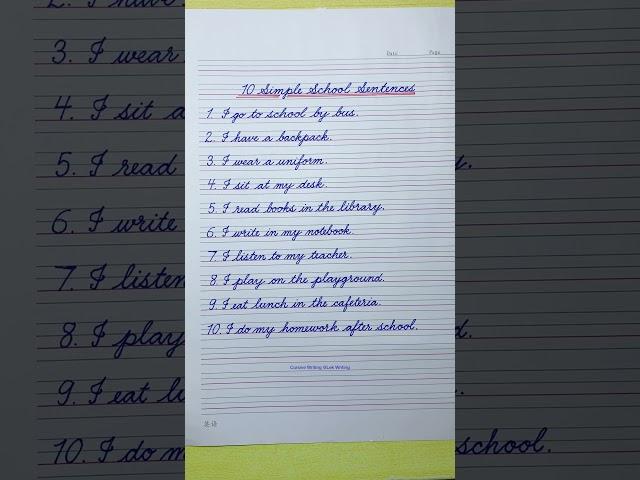 Date Page
10 Simple School Sentences
1. I go to school by bus.
2. I have a backpack.
3. I wear a uniform.
4. I sit at my desk.
5. I read books in the library.
6. I write in my notebook.
7. I listen to my teacher.
8. I play on the playground.
9. I eat lunch in the cafeteria.
10. I do my homework after school.
Cursive Writing GLek Writing
英语